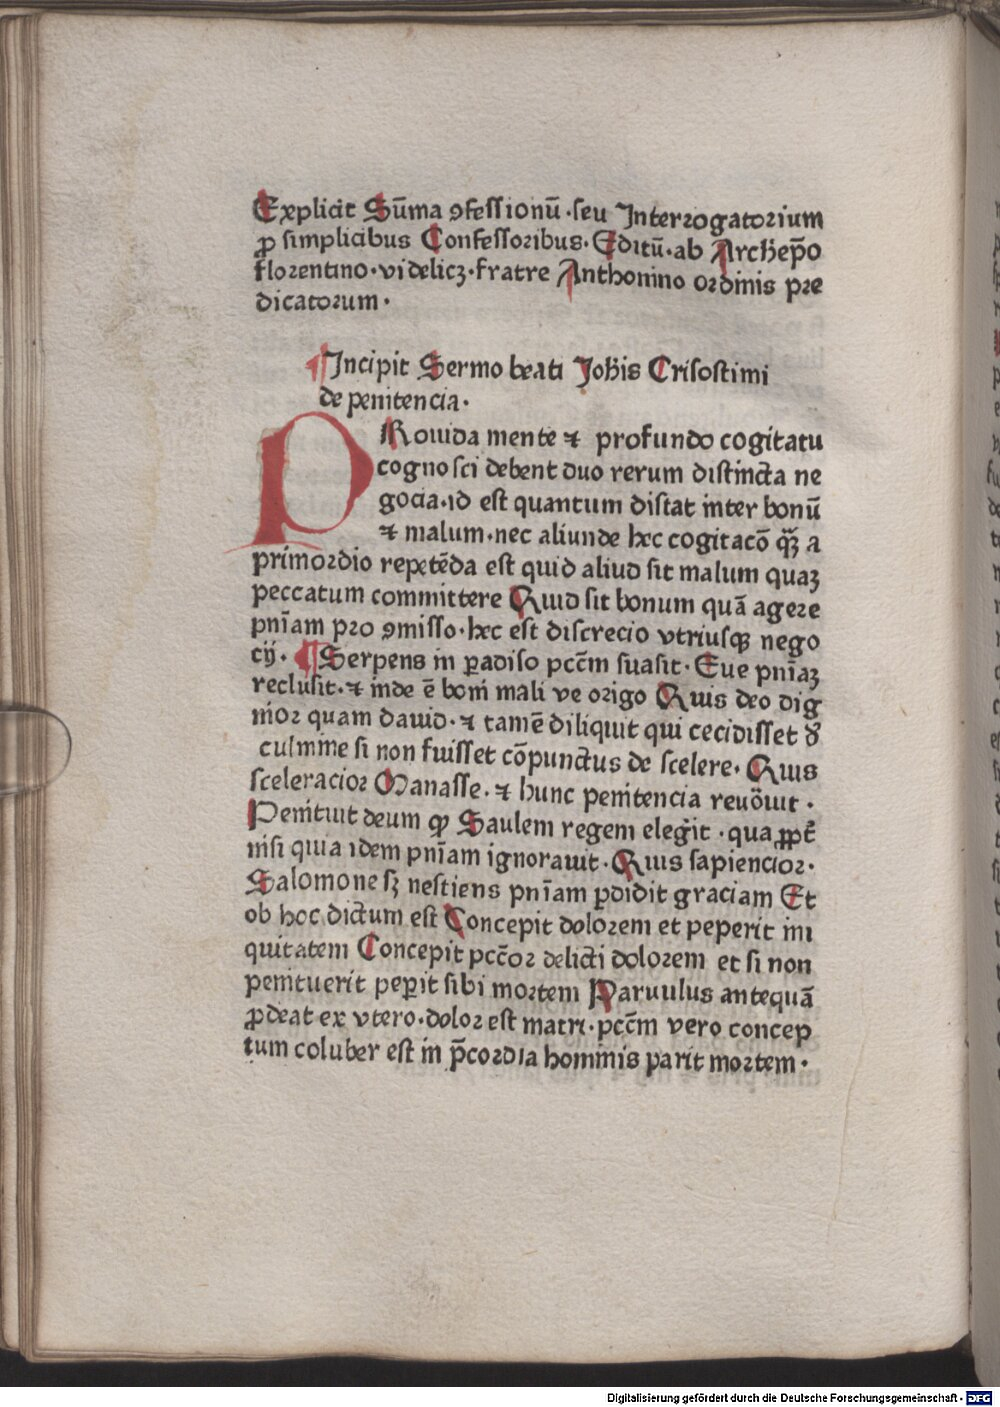 Explicit Sūma ꝯfessionū·seu Interrogatorium
ꝓ simplicibus Confessoribus·Editū·ab Archep̄o
florentino·videlicꝫ·fratre Anthonino ordinis pre
dicatorum·
¶Incipit Sermo beati Joh̄is Crisostimi
de penitencia·
PRouida mente ⁊ profundo cogitatu
cognosci debent duo rerum distincta ne
gocia·id est quantum distat inter bonū
⁊ malum·nec aliunde hec cogitacō qͣꝫ a
primordio repetēda est quid aliud sit malum quaꝫ
peccatum committere Quid sit bonum quā agere
pn̄iam pro ꝯmisso·hec est discrecio vtriusqꝫ nego
cij· ¶Serpens in ꝑadiso pcc̄m suasit·Eue pn̄iaꝫ
reclusit·⁊ inde ē boni mali ve origo Quis deo dig
nior quam dauid·⁊ tamē diliquit qui cecidisset d̾
culmine si non fuisset cōpunctus de scelere·Quis
sceleracior Manasse·⁊ hunc penitencia reuōuit·
Penituit deum ꝙ Saulem regem elegit·qua ꝓpt̄
nisi quia idem pn̄iam ignorauit·Quis sapiencior·
Salomone sꝫ nestiens pn̄iam ꝑdidit graciam Et
ob hoc dictum est Concepit dolorem et peperit ini
quitatem Concepit pcc̄or delicti dolorem et si non
penituerit peꝑit sibi mortem Paruulus antequā
ꝓdeat ex vtero·dolor est matri·pcc̄m vero concep
tum coluber est in p̄cordia hominis parit mortem·
Digitalisierung gefördert durch die Deutsche Forschungsgemeinschaft - DFG